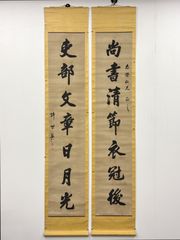 尚書清節衣冠後
吏部文章日月光